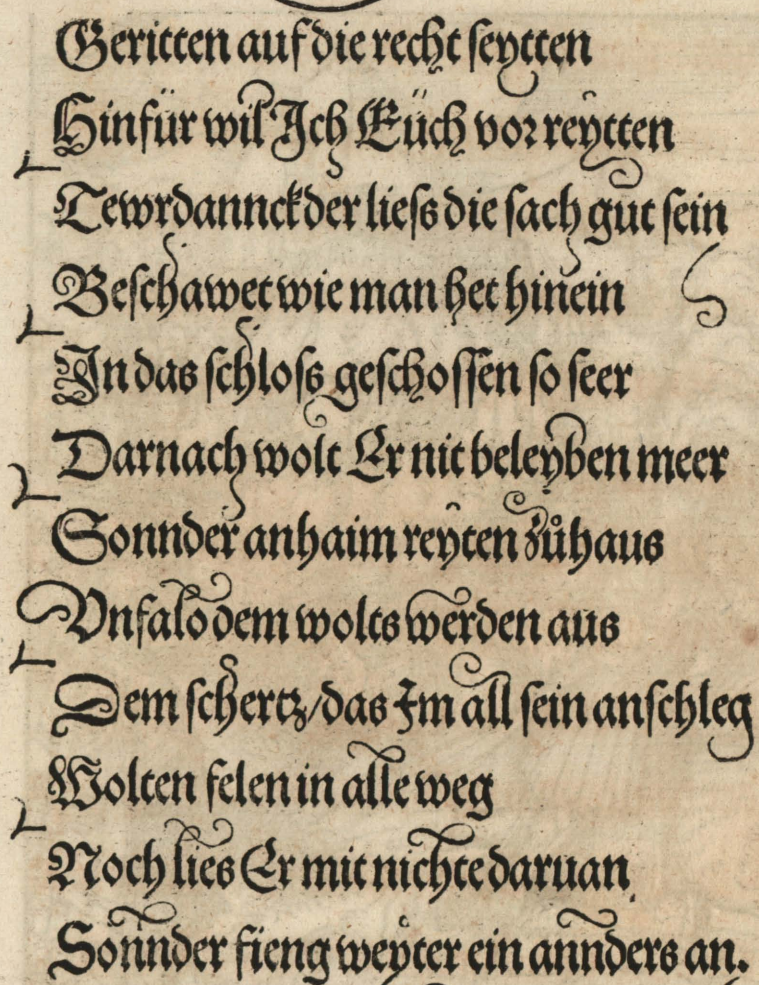 Geritten auf die recht seytten
Hinfür wil Ich Eüch vor reÿtten
Tewrdannck der liess die sach gůt sein
Beschawet wie man het hinein
In das schloss geschossen so seer
Darnach wolt Er nit beleyben meer
Sonnder anhaim reÿten zůhaus
Vnfalo dem wolts werden aus
Dem schertz/das Im all sein anschleg
Wolten felen in alle weg
Noch lies Er mit nichte daruan
Sonnder fieng weyter ein annders an.